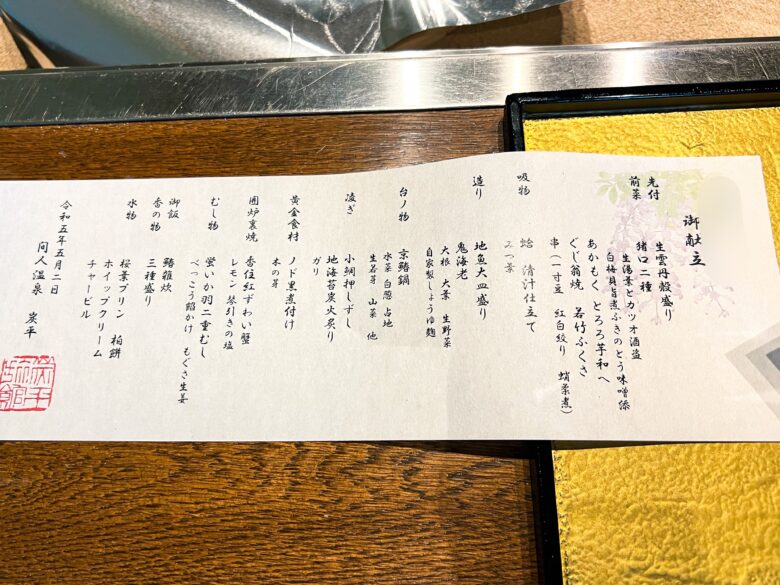 御献立
先付 生雲丹殻盛り
前菜 猪口二種
生湯葉とカツオ酒盗
白梅貝旨煮ふきのとう味噌添
あかもく とろろ芋和へ
ぐじ翁焼 若竹ふくさ
串(一寸豆 紅白絞り 蛸柔煮)
吸物
蛤 清汁仕立て
みつ葉
造り
地魚大皿盛り
鬼海老
大根 大葉 生野菜
自家製しょうゆ麹
台ノ物
京鰆鍋
水菜 白葱 占地
生若芽 山菜 他
凌ぎ
小鯛押しずし
地海苔炭火炙り
ガリ
黄金食材
ノド黒煮付け
木の芽
囲炉裏焼
香住紅ずわい蟹
レモン 琴引きの塩
むし物
蛍いか羽二重むし
べっこう餡かけ もぐさ生姜
御飯 鰆雑炊
香の物 三種盛り
水物
桜葉プリン 柏餅
ホイップクリーム
チャービル
令和五年五月二日
間人温泉 炭平